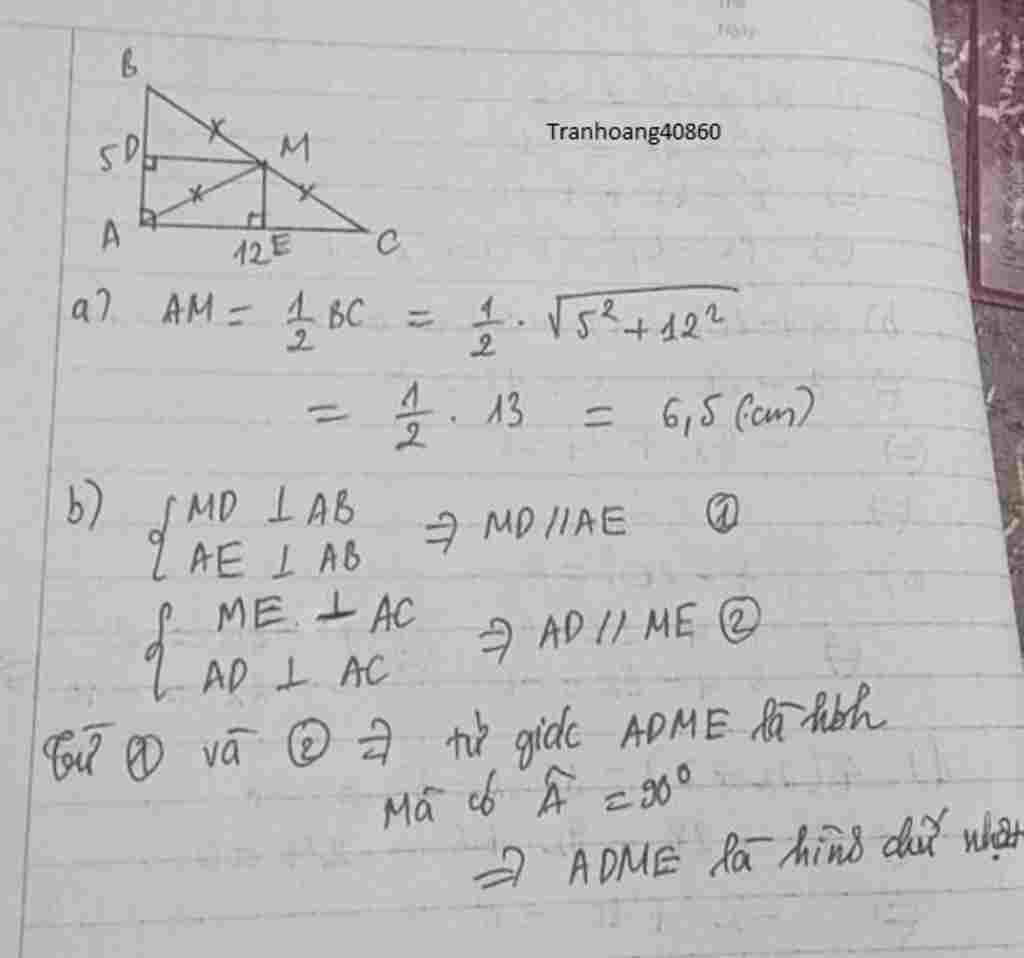 B
Tranhoang40860
5 D M
A 12 E C
a) AM = 1/2 BC = 1/2 . √(5² + 12²)
= 1/2 . 13 = 6,5 (cm)
b) { MD ⊥ AB
AE ⊥ AB ⇒ MD // AE ①
{ ME ⊥ AC
AD ⊥ AC ⇒ AD // ME ②
Từ ① và ② ⇒ tứ giác ADME là hbh
Mà có Â = 90°
⇒ ADME là hình chữ nhật